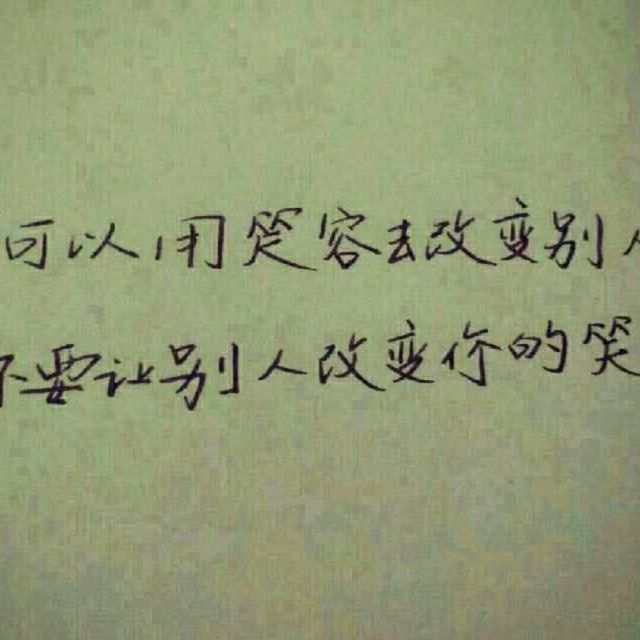 可以用笑容去改变别人
不要让别人改变你的笑